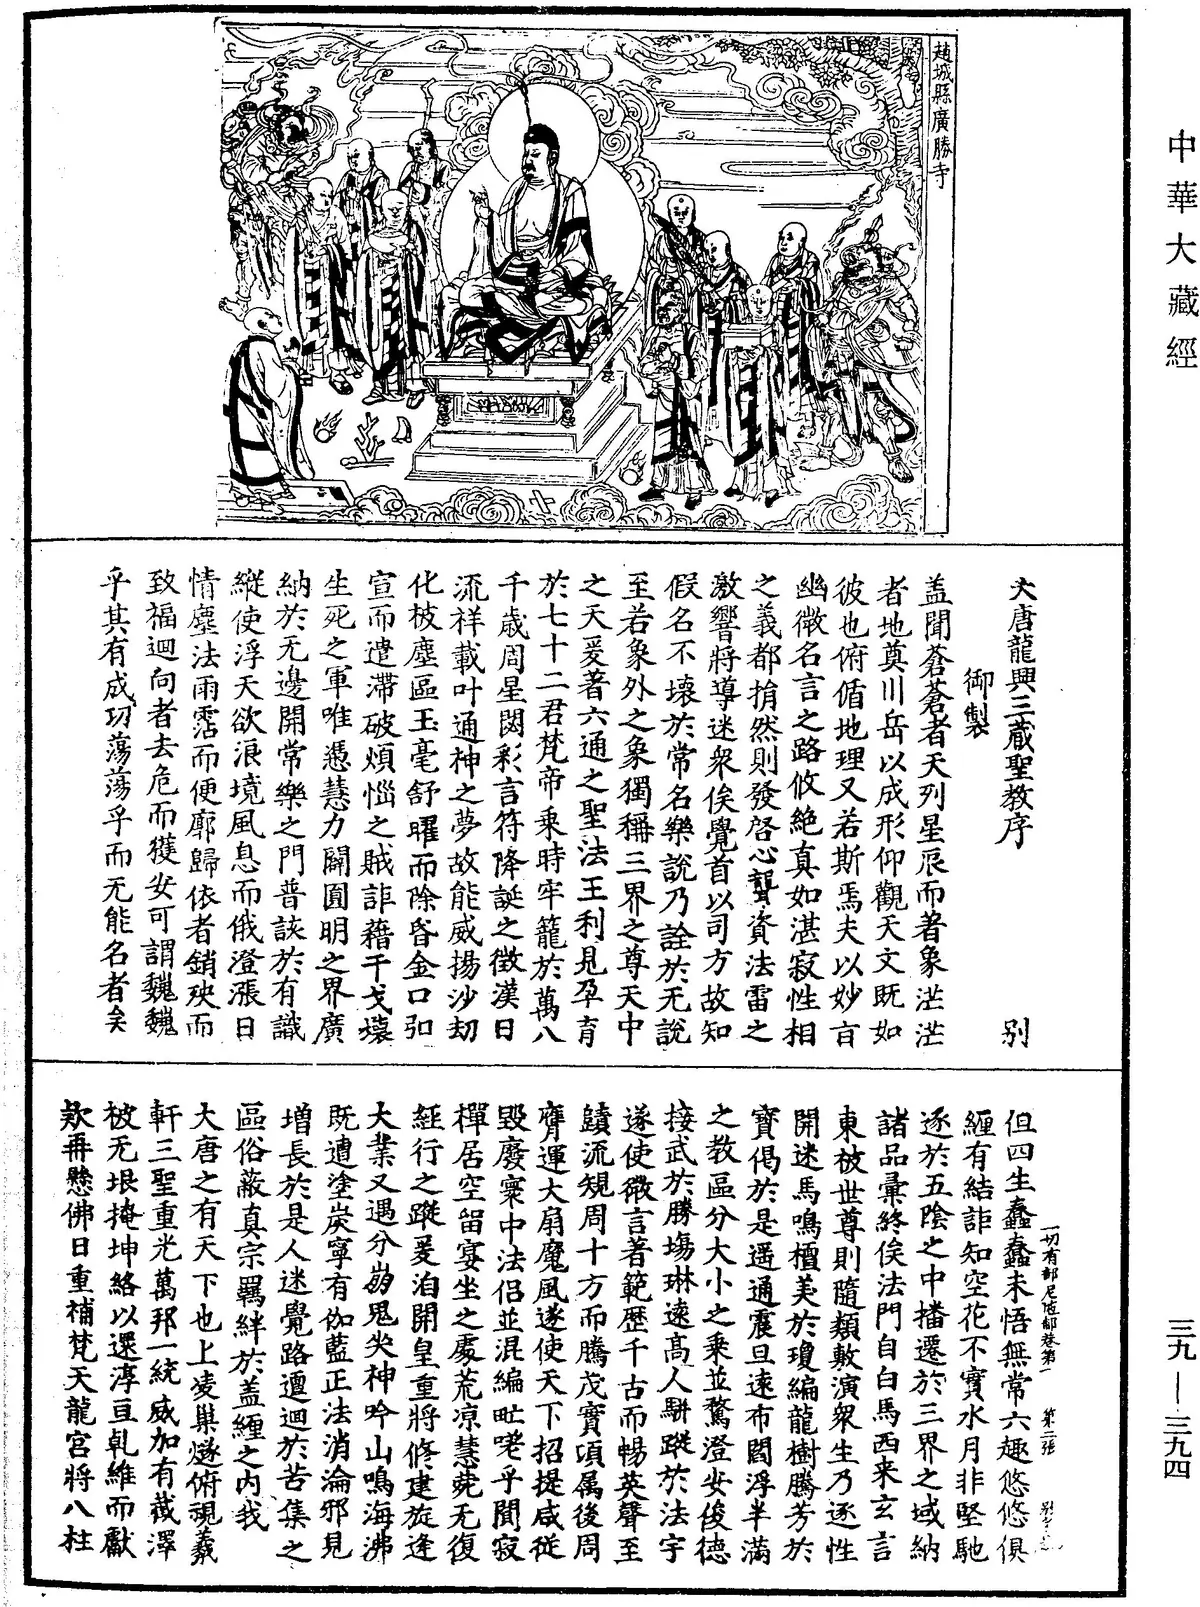 中華大藏經
趙城縣廣勝寺
大唐龍興三藏聖教序　别
御製
盖聞蒼蒼者天列星辰而著象茫茫
者地奠川岳以成形仰觀天文既如
彼也俯循地理又若斯焉夫以妙旨
幽微名言之路攸絶真如湛寂性相
之義都捐然則發啓心聾資法雷之
激響將導迷衆俟覺首以司方故知
假名不壞於常名樂說乃詮於无說
至若象外之象獨稱三界之尊天中
之天爰著六通之聖法王利見孕育
於七十二君梵帝乘時牢籠於萬八
千歲周星閟彩言符降誕之徵漢日
流祥載叶通神之夢故能威揚沙刧
化被塵區玉毫舒曜而除昏金口弘
宣而遣滯破煩惱之賊詎藉干戈壞
生死之軍唯憑慧力闢圓明之界廣
納於无邊開常樂之門普該於有識
縱使浮天欲浪境風息而俄澄漲日
情塵法雨霑而便廓歸依者銷殃而
致福迴向者去危而獲安可謂巍巍
乎其有成功蕩蕩乎而无能名者矣
一切有部尼陁那卷第一　第二張
但四生蠢蠢未悟無常六趣悠悠俱
纏有結詎知空花不實水月非堅馳
逐於五陰之中播遷於三界之域納
諸品彙終俟法門自白馬西来玄言
東被世尊則隨類敷演衆生乃逐性
開迷馬鳴檀美於瓊編龍樹騰芳於
寶偈於是遥通震旦遠布閻浮半滿
之教區分大小之乘並騖澄安俊德
接武於勝塲琳遠高人駢蹤於法宇
遂使微言著範歷千古而暢英聲至
賾流規周十方而騰茂實頃属後周
膺運大扇魔風遂使天下招提咸從
毀廢寰中法侶並混編甿嗟乎閴寂
禪居空留宴坐之處荒凉慧苑无復
經行之蹤爰洎開皇重將修建旋逢
大業又遇分崩鬼哭神吟山鳴海沸
既遭塗炭寧有伽藍正法消淪邪見
增長於是人迷覺路邅迴於苦集之
區俗蔽真宗羈絆於盖纏之内我
大唐之有天下也上凌巢燧俯視羲
軒三聖重光萬邦一統威加有截澤
被无垠掩坤絡以還淳亘乹維而獻
欵再懸佛日重補梵天龍宫將八柱
三九—三九四